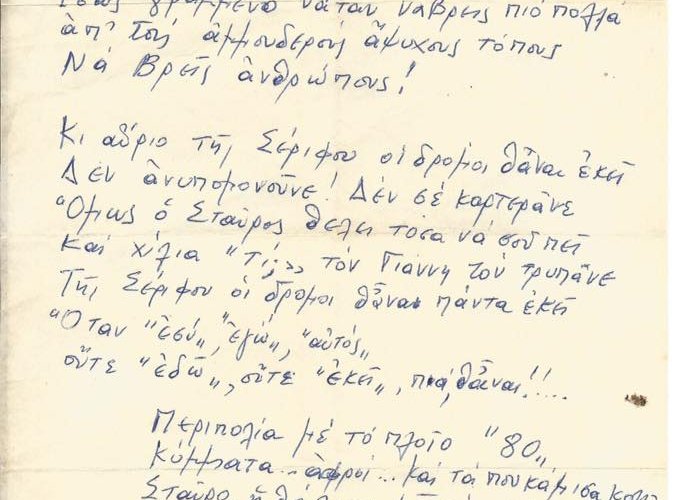 Ἴσως γραμμένο νἆταν νἄβρεις πιό πολλά
ἀπ' τούς ἀμμουδερούς ἄψυχους τόπους
Νά βρεῖς ἀνθρώπους!
Κι αὔριο τῆς Σέριφου οἱ δρόμοι θἆναι ἐκεῖ
Δέν ἀνυπομονοῦνε! Δέν σέ καρτερᾶνε
Ὅμως ὁ Σταῦρος θέλει τόσα νά σοῦ πεῖ
Καί χίλια "Τί;,, τόν Γιάννη τόν τρυπᾶνε
Τῆς Σέριφου οἱ δρόμοι θἆναι πάντα ἐκεῖ
Ὅταν "ἐσύ,, "ἐγώ,, "αὐτός,,
οὔτε "ἐδῶ,,, οὔτε "ἐκεῖ,,, πιά, θἆναι!!....
Περιπολία μέ τό πλοῖο "80,,
Κύμματα...ἀφροί...καί τά πουκάμισα
Σταῦρο ἤ